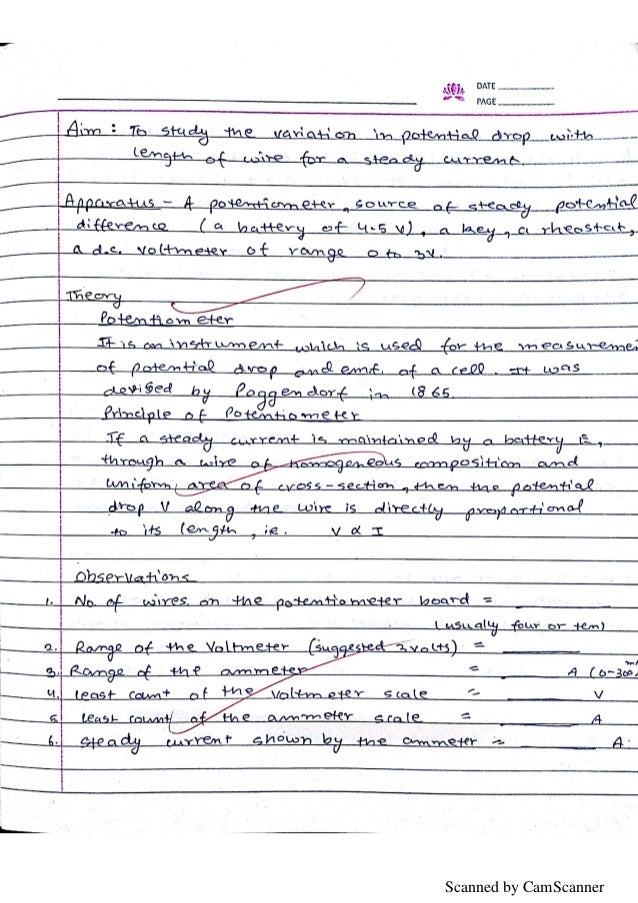 DATE
PAGE
Aim : To study the variation in potential drop with
length of wire for a steady current.
Apparatus - A potentiometer, source of steady potential
difference (a battery of 4.5 V), a key, a rheostat,
a d.c. voltmeter of range 0 to 3V.
Theory
Potentiometer
It is an instrument which is used for the measureme
of potential drop and emf. of a cell. It was
devised by Poggendorf in 1865.
Principle of Potentiometer
If a steady current is maintained by a battery E,
through a wire of homogeneous composition and
uniform area of cross-section, then the potential
drop V along the wire is directly proportional
to its length, ie. V α I
Observations
1. No. of wires on the potentiometer board =
(usually four or tem)
2. Range of the Voltmeter (suggested 3volts) =
3. Range of the ammeter = A (0-300 m
4. least count of the voltmeter scale = V
5. least count of the ammeter scale = A
6. steady current shown by the ammeter = A.
Scanned by CamScanner